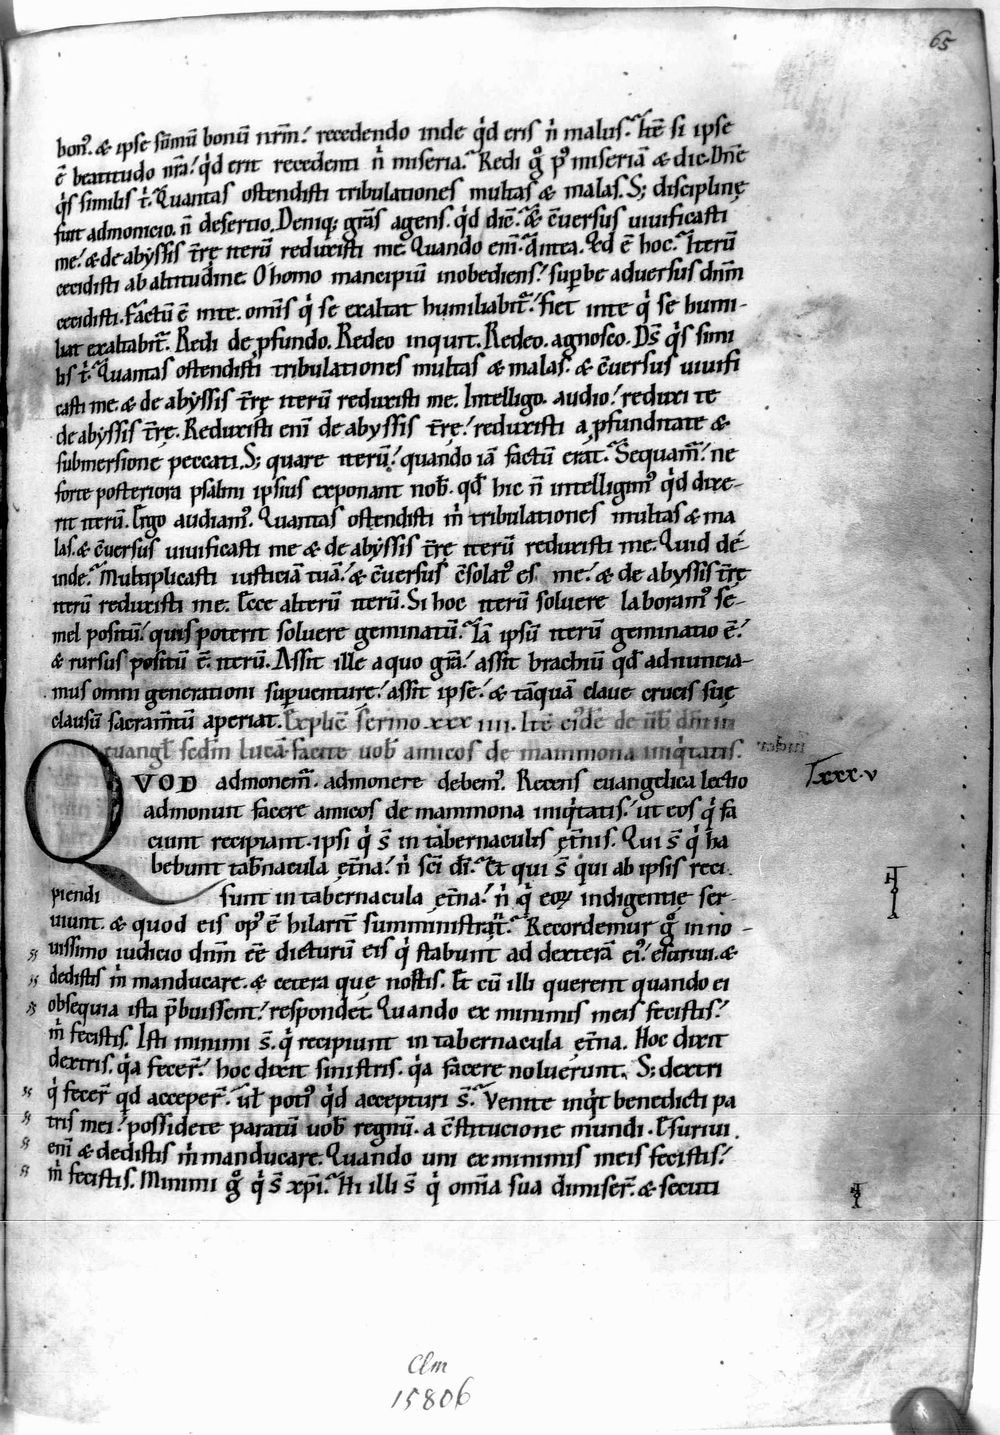 65
bon᷒. & ipse sūmū bonū nr̄m? recedendo inde qͥd eris n̄ malus? Itē si ipse
ē beatitudo nr̄a? qͥd erit recedenti n̄ miseria? Redi gͦ pꝰ miseriā & dic. Dn̄e
qͥs similis t̄. Quantas ostendisti tribulationes multas & malas. S; disciplinę
sunt admonicio. n̄ desertio. Deniq; grās agens. qͥd dic̄? & c̄uersus uiuificasti
me? & de abyssis t̄rę iterū reduxisti me. Quando eni̅? antea. Qd ē hoc? Iterū
cecidisti ab altitudine. O homo mancipiū inobediens? suꝑbe aduersus dn̄m
cecidisti. Factū ē inte. omīs qͥ se exaltat humiliabit᷑? fiet inte qͥ se humi-
liat exaltabit᷑. Redi de ꝓfundo. Redeo inquit. Redeo. agnosco. Ds̄ qͥs simi
lis t̄. Quantas ostendisti tribulationes multas & malas. & c̄uersus uiuifi
casti me. & de abyssis t̄rę iterū reduxisti me. Intelligo. audio? reduxi te
de abyssis t̄rę. Reduxisti enī de abyssis t̄rę? reduxisti a ꝓfunditate &
submersione peccati. S; quare iterū? quando iā factū erat? Sequam᷑? ne
forte posteriora psalmi ipsius exponant nob̄. qd̄ hic n̄ intelligimꝰ qͥd dixe-
rit iterū. Ergo audiamꝰ. Quantas ostendisti m̄ tribulationes multas & ma
las. & c̄uersus uiuificasti me & de abyssis t̄rę iterū reduxisti me. Quid de-
inde? Multiplicasti iusticiā tuā? & c̄uersus c̄solatꝰ es me? & de abyssis t̄rę
iterū reduxisti me. Ecce alterū iterū. Si hoc iterū soluere laboramꝰ se-
mel positū? quis poterit soluere geminatū? Iā ipsū iterū geminatio ē?
& rursus positū ē iterū. Assit ille a quo grā? assit brachiū qd̄ adnuncia-
mus omni generationi suꝑuenture? assit ipse? & tāquā claue crucis suę
clausū sacramtū aperiat. Explic̄ sermo xxx iiii. Itē eiꝰdē de ūb̄ dn̄i in
euangl̄ scdm̄ lucā. facite uob̄ amicos de mammona iniqͥtatis.
Txxx.v
QVOD admonem᷑. admonere debemꝰ. Recens euangelica lectio
admonuit facere amicos de mammona iniqͥtatis? ut eos qͥ fa
ciunt recipiant. ipsi qͥ s̄ in tabernaculis et̄nis. Qui s̄ qͥ ha
bebunt tab̄nacula et̄na? n̄ sc̄i dī? Et qui s̄ qͥ ab ipsis reci
piendi sunt in tabernacula et̄na? n̄ qͥ eoꝝ indigentię ser-
uiunt. & quod eis opꝰ ē hilarit̄ sumministrant? Recordemur gͦ in no-
uissimo iudicio dn̄m ee̅ dicturū eis qͥ stabunt ad dexterā eiꝰ? esuriui. &
dedistis m̄ manducare. & cetera que nostis. Et cū illi querent quando ei
obsequia ista p̄buissent? respondet. Quando ex minimis meis fecistis?
m̄ fecistis. Isti minimi s̄. qͥ recipiunt in tabernacula et̄na. Hoc dixit
dextris. qͥa fecer̄? hoc dixit sinistris. qͥa facere noluerunt. S; dextri
qͥ fecer̄ qͥd acceper̄. ul̄ potiꝰ qͥd accepturi s̄? Venite inqͥt benedicti pa
tris mei? possidete paratū uob̄ regnū. a c̄stitucione mundi. Esuriui.
enī & dedistis m̄ manducare. Quando uni ex minimis meis fecistis?
m̄ fecistis. Minimi gͦ qͥ s̄ xp̄i? Hi illi s̄ qͥ omīa sua dimiser̄. & secuti
Clm
15806